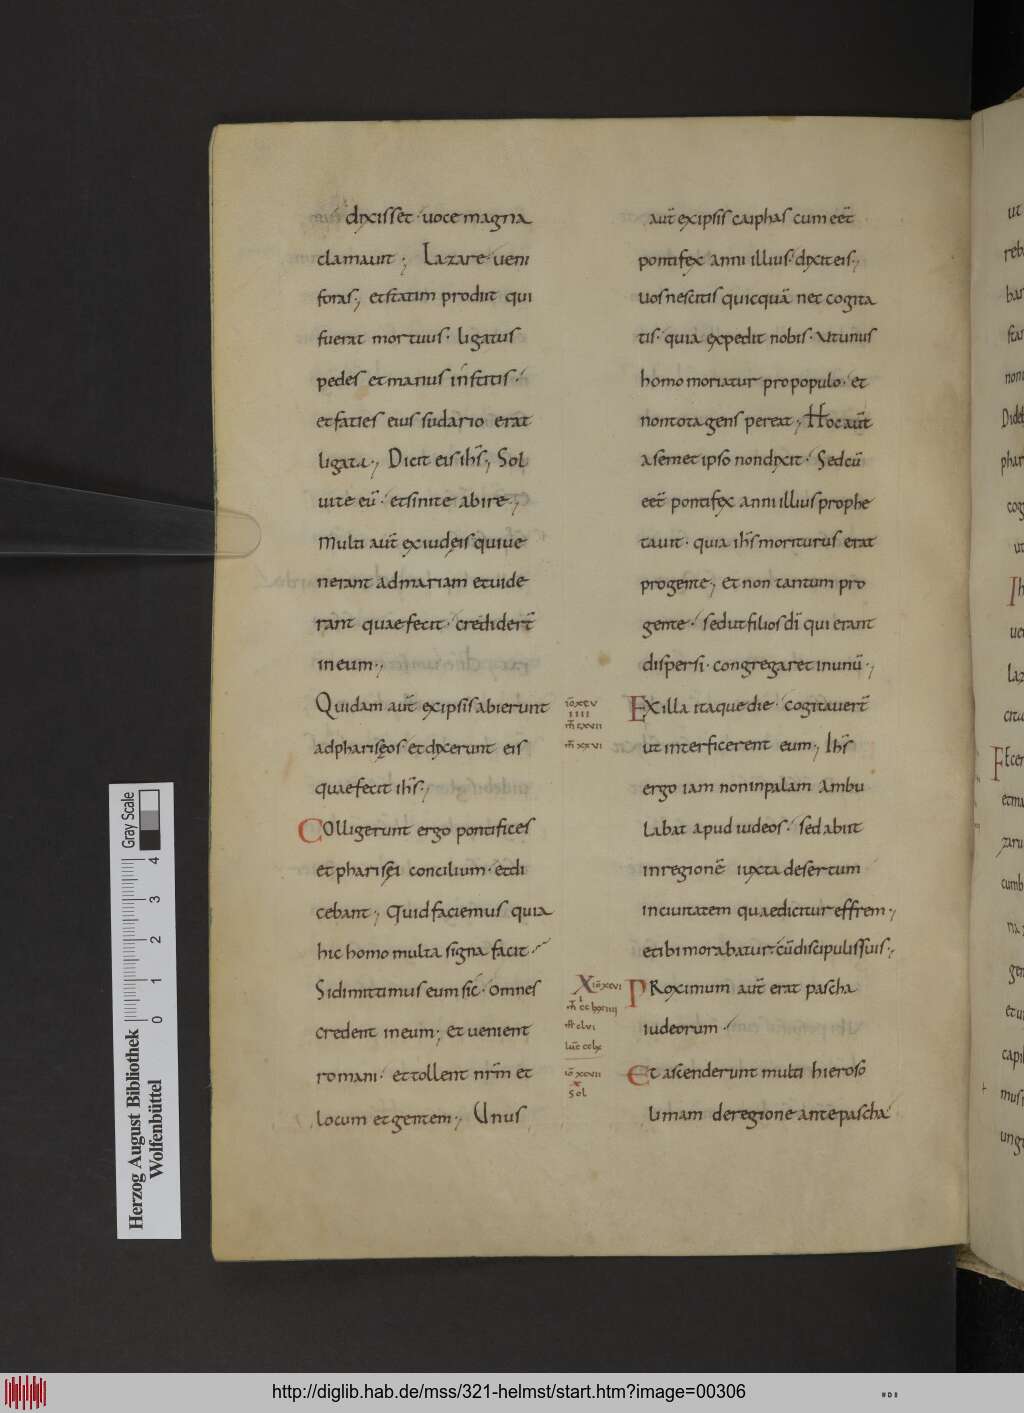 dixisset · uoce magna
clamauit ; Lazare ueni
foras ; et statim prodiit qui
fuerat mortuus · ligatus
pedes et manus institis ·
et facies eius sudario erat
ligata ; Dicit eis ihs̄ ; Sol
uite eū · et sinite abire ;
Multi aut̄ ex iudęis qui ue
nerant ad mariam et uide
rant quae fecit · credidert̄
in eum ;
Quidam aut̄ ex ipsis abierunt
ad pharisęos · et dixerunt eis
quae fecit ihs̄ ;
Colligerunt ergo pontifices
et pharisęi concilium · et di
cebant ; Quid faciemus quia
hic homo multa signa facit ·
Si dimittimus eum sic · omnes
credent in eum ; et uenient
romani · et tollent nrm̄ et
locum et gentem ; Unus
aut̄ ex ipsis caiphas cum eet̄
pontifex anni illius · dixit eis ;
uos nescitis quicquā nec cogita
tis · quia expedit nobis · ut unus
homo moriatur pro populo · et
non tota gens pereat ; Hoc aut̄
a semet ipso non dixit · Sed cū
eet̄ pontifex anni illius prophe
tauit · quia ihs̄ moriturus erat
pro gente ; et non tantum pro
gente · sed ut filios dī qui erant
dispersi · congregaret in unū ;
iō xcv
IIII
m̄ xxvi
Ex illa itaque die · cogitauert̄
ut interficerent eum ; Ihs̄
ergo iam non in palam ambu
labat apud iudeos · sed abiit
in regionē iuxta desertum
in ciuitatem quae dicitur effrem ;
et ibi morabatur cū discipulis suis ;
X iō xcvi
Proximum aut̄ erat pascha
iudeorum ·
iō xcvii
x
Sol
Et ascenderunt multi hieroso
limam de regione ante pascha
Herzog August Bibliothek
Wolfenbüttel
Gray Scale
0 1 2 3 4
http://diglib.hab.de/mss/321-helmst/start.htm?image=00306